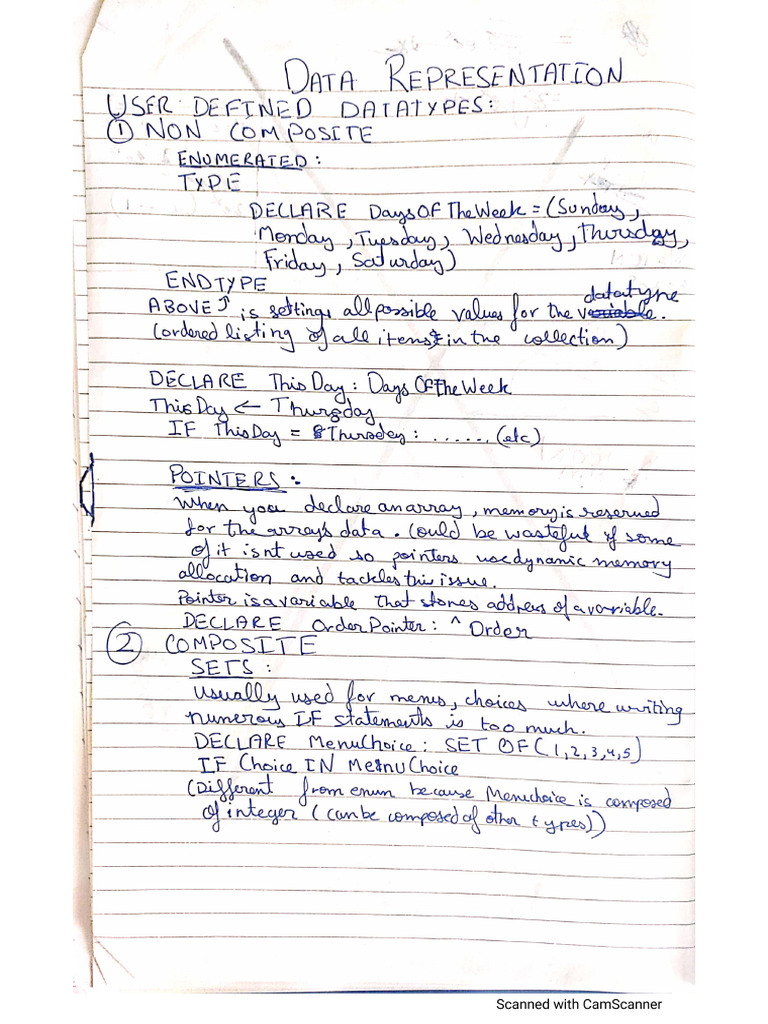 DATA REPRESENTATION
USER DEFINED DATATYPES:
① NON COMPOSITE
ENUMERATED:
TYPE
DECLARE DaysOfTheWeek = (Sunday,
Monday, Tuesday, Wednesday, Thursday,
Friday, Saturday)
ENDTYPE
datatype
ABOVE ⤴ is setting all possible values for the variable.
(ordered listing of all items in the collection)
DECLARE ThisDay : DaysOfTheWeek
ThisDay ← Thursday
IF ThisDay = Thursday : ...... (etc)
POINTERS :
When you declare an array, memory is reserved
for the array's data. Could be wasteful if some
of it isnt used so pointers use dynamic memory
allocation and tackles this issue.
Pointer is a variable that stores address of a variable.
DECLARE OrderPointer : ^ Order
② COMPOSITE
SETS :
Usually used for menus, choices where writing
numerous IF statements is too much.
DECLARE MenuChoice : SET OF (1,2,3,4,5)
IF Choice IN MenuChoice
(Different from enum because Menuchoice is composed
of integer (can be composed of other types))
Scanned with CamScanner